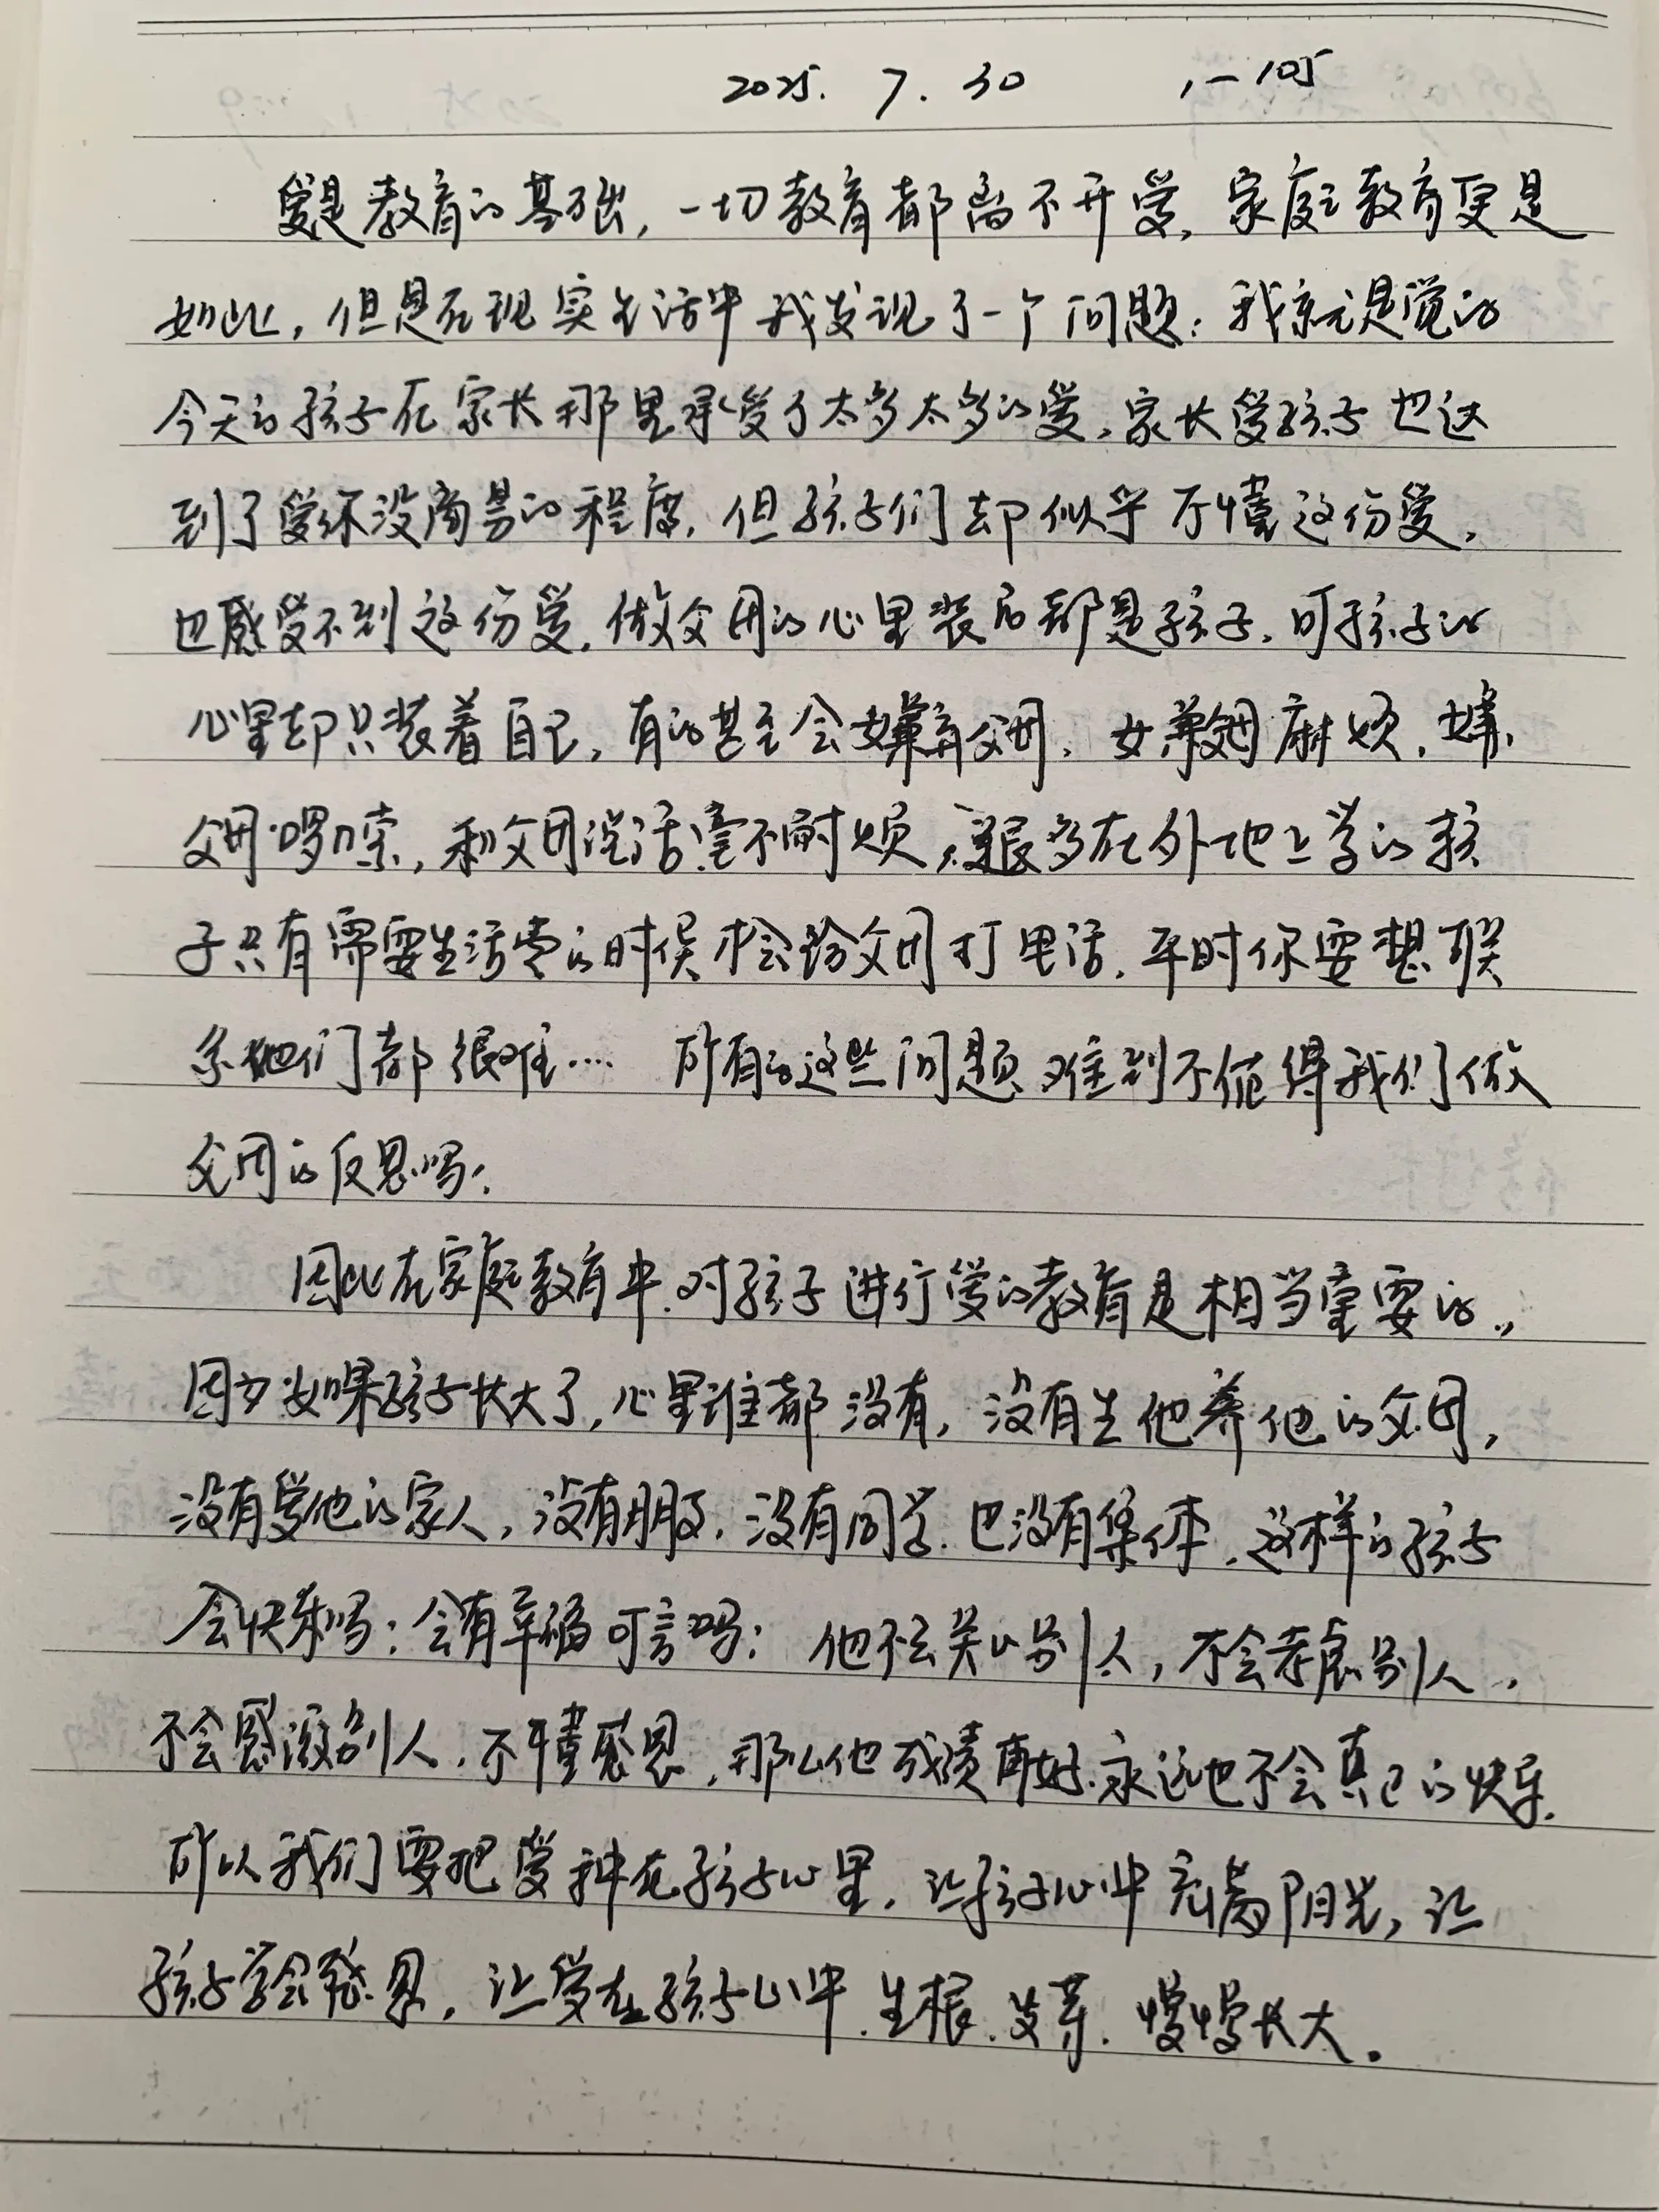 2025. 7. 30
爱是教育的基础,一切教育都离不开爱,家庭教育更是
如此,但是在现实生活中我发现了一个问题:我就是觉的
今天的孩子在家长那里承受了太多太多的爱,家长爱孩子也达
到了爱你没商量的程度,但孩子们却似乎不懂这份爱,
也感受不到这份爱,做父母的心里装的都是孩子,可孩子的
心里却只装着自己,有的甚至会嫌弃父母,嫌父母麻烦,嫌
父母啰嗦,和父母说话毫不耐烦,很多在外地上学的孩
子只有需要生活费的时候才会给父母打电话,平时你要想联
系他们都很难…. 所有的这些问题难到不值得我们做
父母的反思吗?
因此在家庭教育中,对孩子进行爱的教育是相当重要的,
因为如果孩子长大了,心里谁都没有,没有生他养他的父母,
没有爱他的家人,没有朋友,没有同学,也没有集体,这样的孩子
会快乐吗?会有幸福可言吗?他不会关心别人,不会考虑别人,
不会感激别人,不懂感恩,那么他成绩再好,永远也不会真正的快乐.
所以我们要把爱种在孩子心里,让孩子心中充满阳光,让
孩子学会感恩,让爱在孩子心中,生根,发芽,慢慢长大。